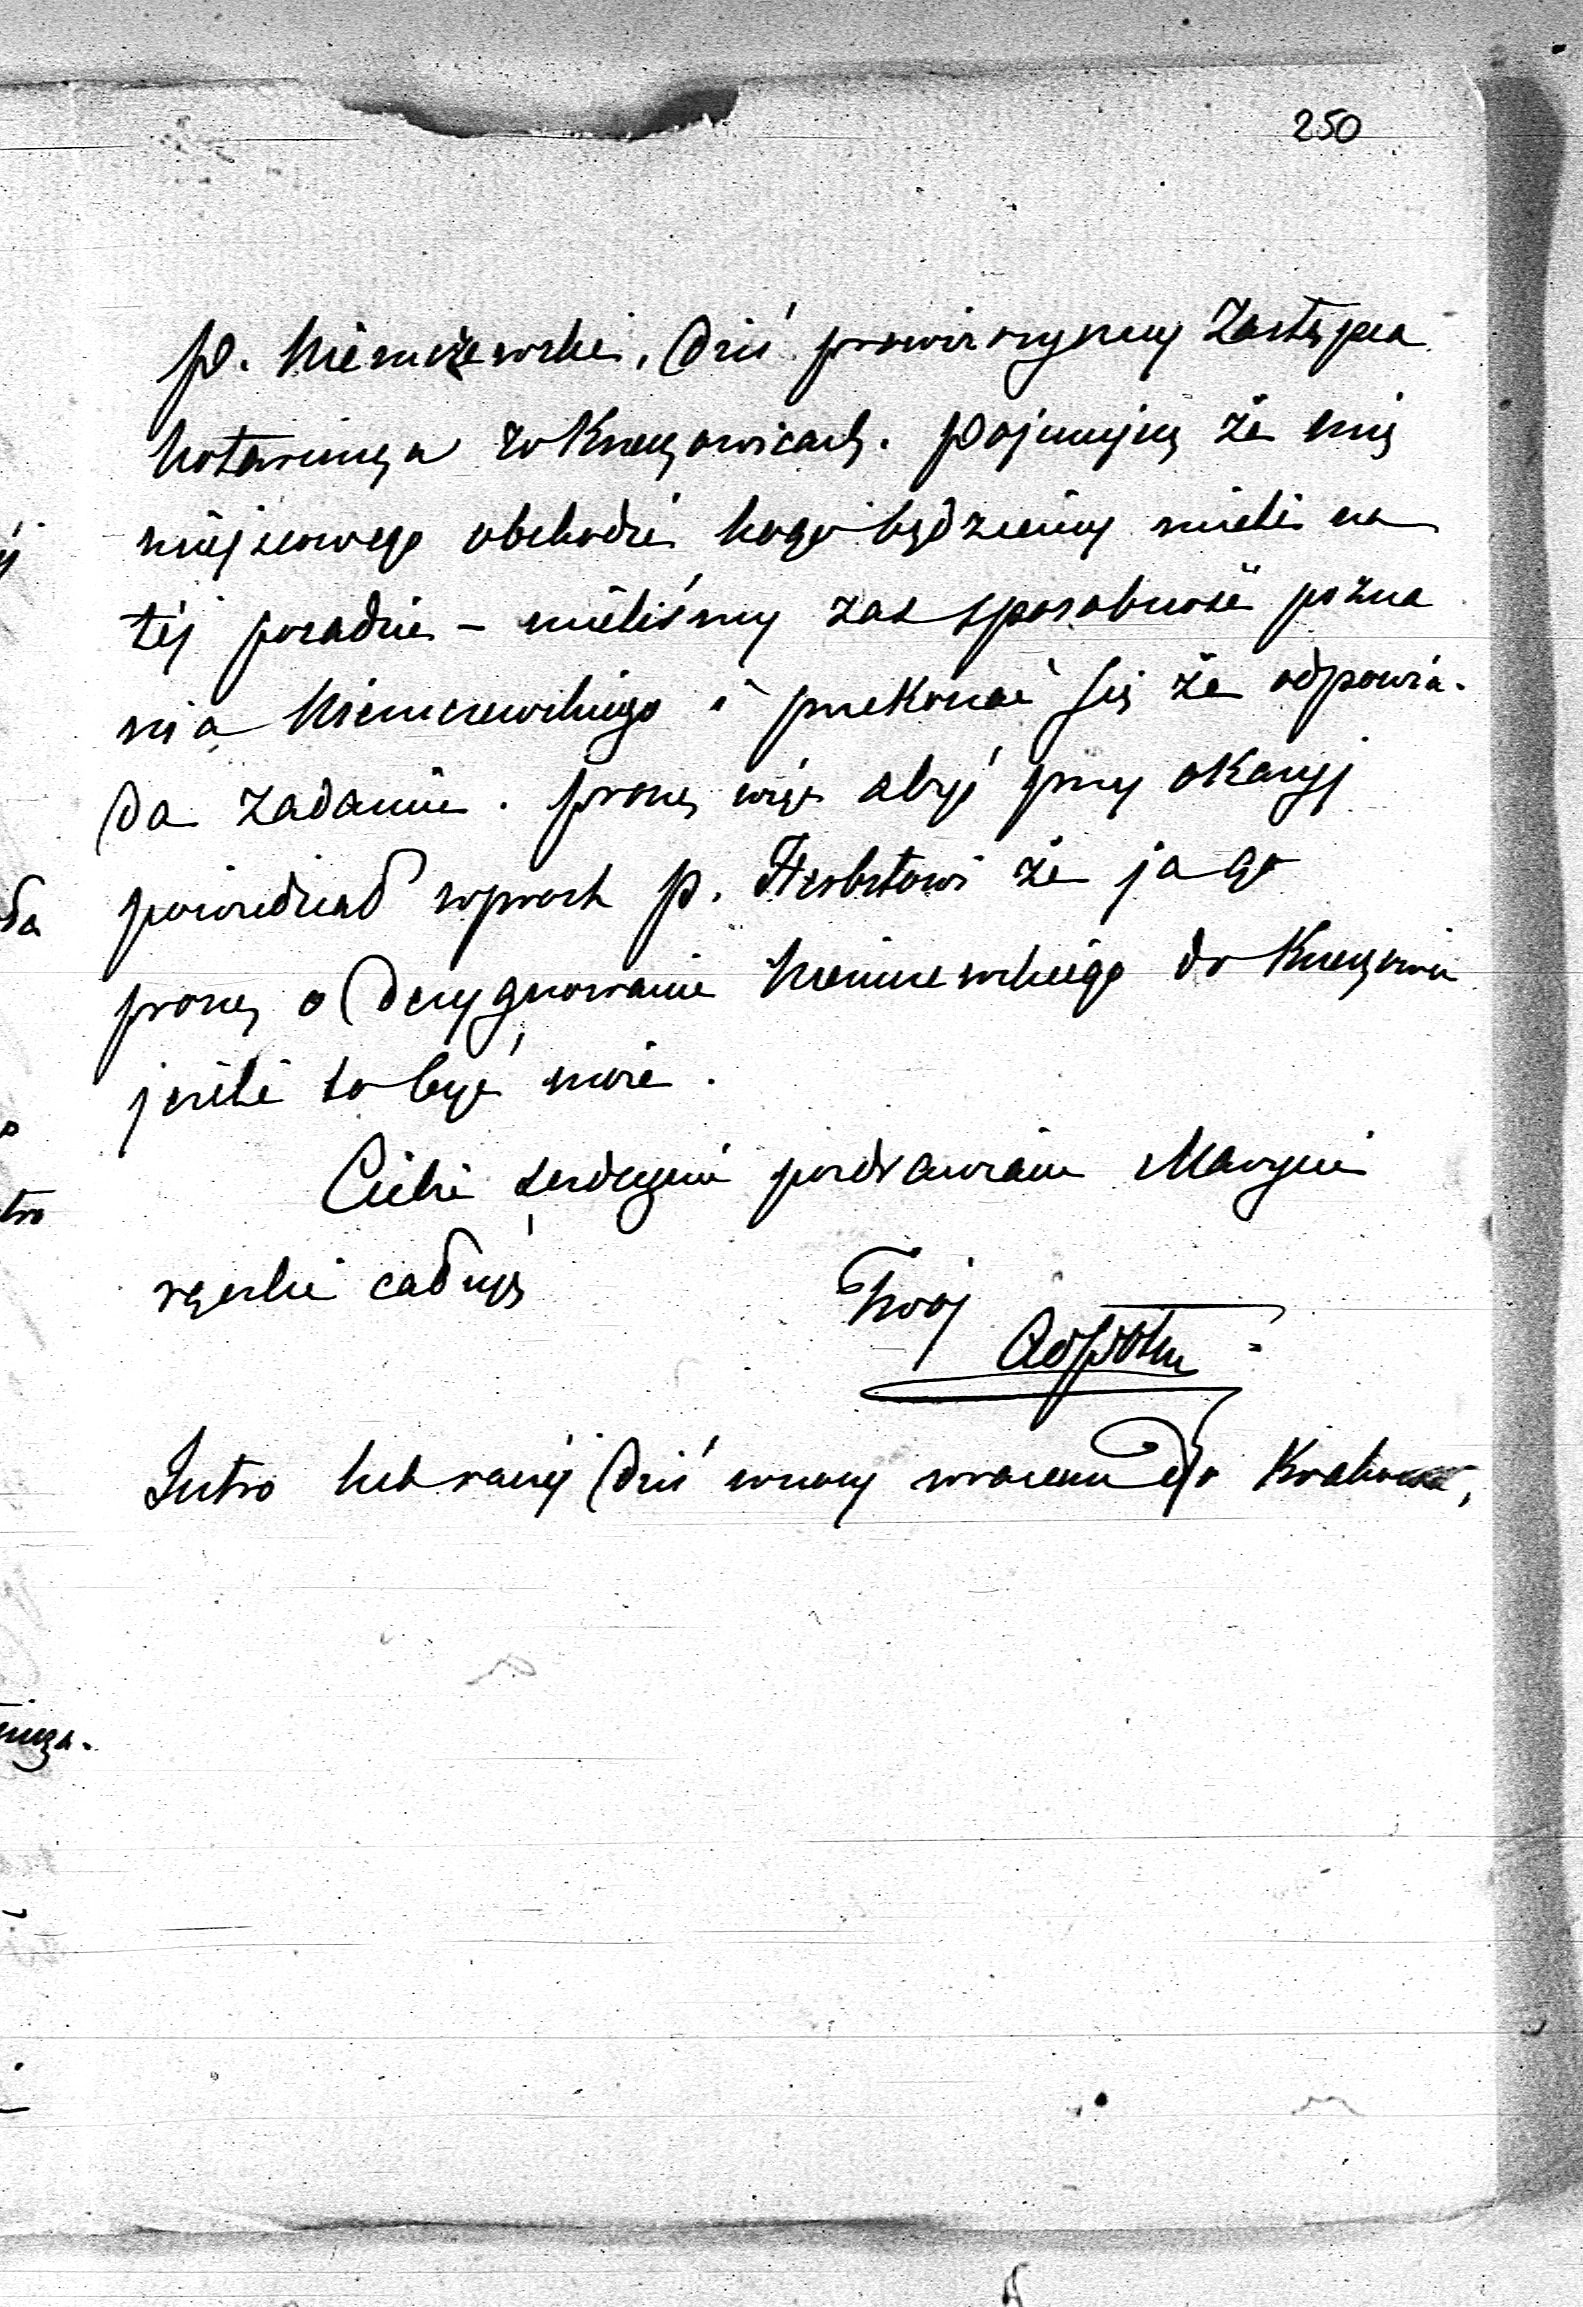 250
p. Niemczewski, dziś prowizoryczny Zastępca
Notaryusza w Krzeszowicach. Pojmujesz że mię
miejscowego obchodzi kogo będziemy mieli na
téj posadzie – mieliśmy zaś sposobność pozna
nia Niemczewskiego i przekonać się że odpowia-
da zadaniu. proszę więc abyś przy okazyi
powiedział wprost p. Herbstowi że ja go
proszę o dezygnowanie Niemczewskiego do Krzeszowic
jeżeli to być może.
Ciebie serdecznie pozdrawiam Maryni
rączki całuję
Twój
Jutro lub raczéj dziś w nocy wracam do Krakowa,